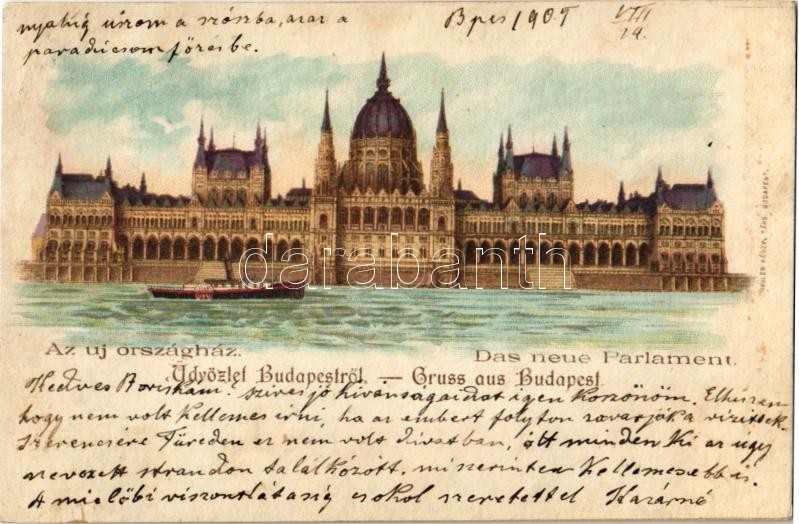 nyakig úszom a szószba, azaz a
paradicsom főzésbe.
Bpes 1905 VIII
14.
darabanth
Az uj országház.
Das neue Parlament.
Üdvözlet Budapestről. — Gruss aus Budapest.
Kedves Boriskám! szives jó kivánságaidat igen köszönöm. Elhiszem
hogy nem volt kellemes irni, ha az embert folyton zavarják a vizittek.
Szerencsére Füreden ez nem volt divatban, ott minden ki az ugy
nevezett strandon találkozott, miszerintem kellemesebb is.
A mielőbi viszontlátásig csokol szeretettel Kazárné